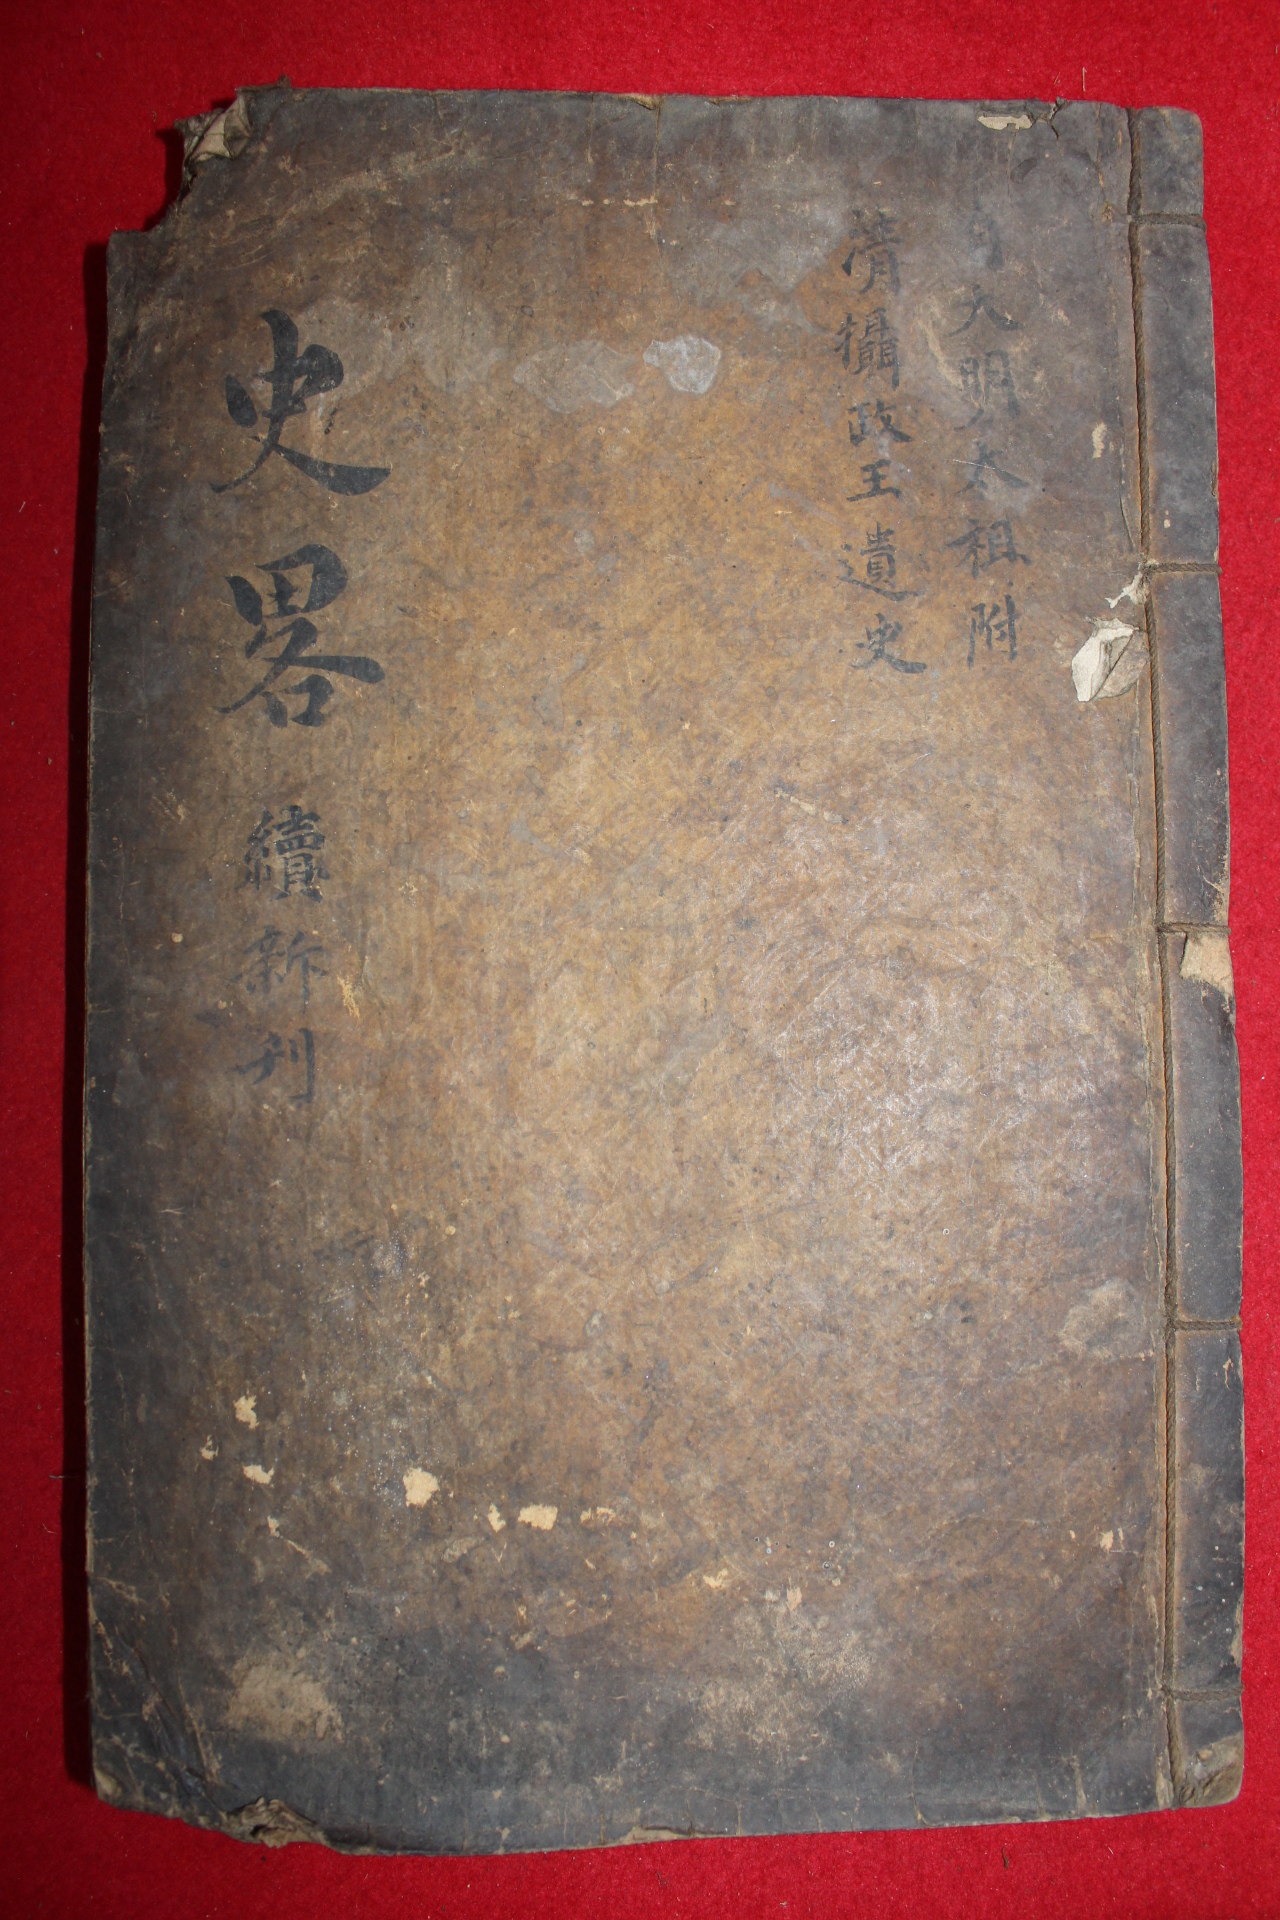 自大明太祖附
清攝政王遺史
史畧 續新刊